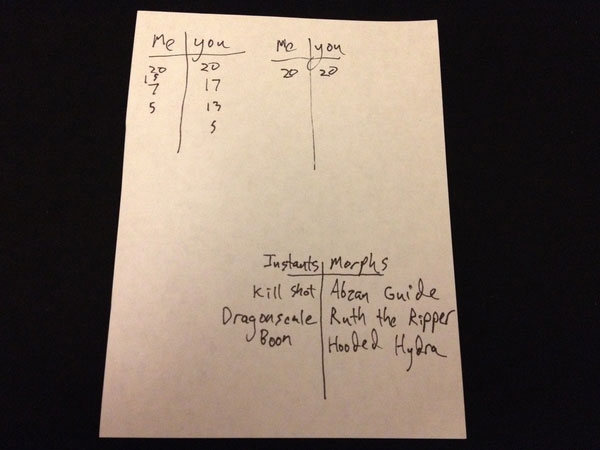 Me you
20 20
15
7 17
5 13
5
Me you
20 20
Instants Morphs
Kill Shot Abzan Guide
Dragonscale Ruth the Ripper
Boon Hooded Hydra